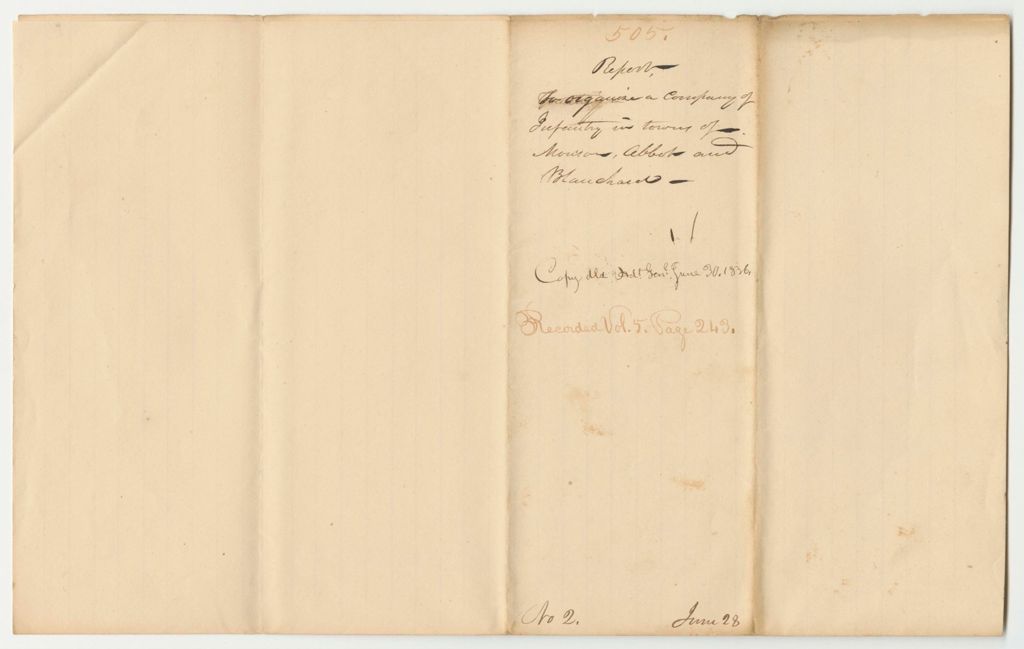 505.
Report,
To organize a Company of
Infantry in towns of
Monson, Abbot and
Blanchard
Copy dld. Adt. Genl. June 30. 1836
Recorded Vol. 5. Page 243.
No 2. June 28